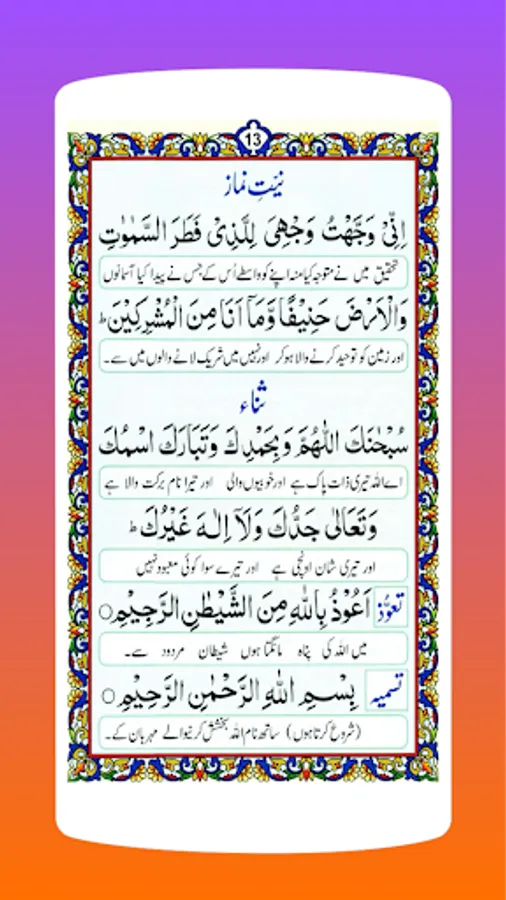 13
نیّتِ نماز
اِنِّیْ وَجَّهْتُ وَجْهِیَ لِلَّذِیْ فَطَرَ السَّمٰوٰتِ
تحقیق میں نے متوجہ کیا منہ اپنے کو واسطے اُس کے جس نے پیدا کیا آسمانوں
وَالْاَرْضَ حَنِیْفًا وَّمَآ اَنَا مِنَ الْمُشْرِكِیْنَ ؕ
اور زمین کو توحید کرنے والا ہوکر اور نہیں میں شریک لانے والوں میں سے۔
ثناء
سُبْحٰنَكَ اللّٰهُمَّ وَبِحَمْدِكَ وَتَبَارَكَ اسْمُكَ
اے اللہ تیری ذات پاک ہے اور خوبیوں والی اور تیرا نام برکت والا ہے
وَتَعَالٰی جَدُّكَ وَلَآ اِلٰـهَ غَیْرُكَ ؕ
اور تیری شان اونچی ہے اور تیرے سوا کوئی معبود نہیں
تعوّذ اَعُوْذُ بِاللّٰهِ مِنَ الشَّیْطٰنِ الرَّجِیْمِ ○
میں اللہ کی پناہ مانگتا ہوں شیطان مردود سے۔
تسمیہ بِسْمِ اللّٰهِ الرَّحْمٰنِ الرَّحِیْمِ ○
(شروع کرتا ہوں) ساتھ نام اللہ بخشش کرنیوالے مہربان کے۔